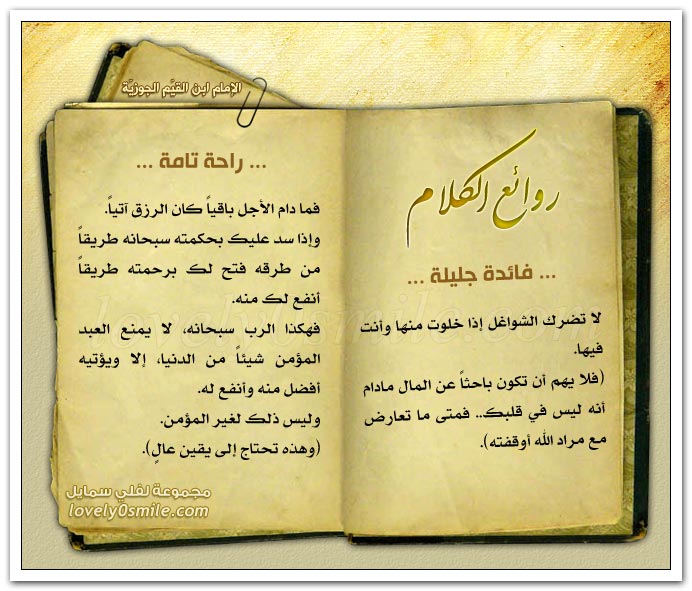 الإمام ابن القيَّم الجوزيَّة
روائع الكلام
... فائدة جليلة ...
لا تضرك الشواغل إذا خلوت منها وأنت
فيها.
(فلا يهم أن تكون باحثاً عن المال مادام
أنه ليس في قلبك.. فمتى ما تعارض
مع مراد الله أوقفته).
... راحة تامة ...
فما دام الأجل باقياً كان الرزق آتياً.
وإذا سد عليك بحكمته سبحانه طريقاً
من طرقه فتح لك برحمته طريقاً
أنفع لك منه.
فهكذا الرب سبحانه، لا يمنع العبد
المؤمن شيئاً من الدنيا، إلا ويؤتيه
أفضل منه وأنفع له.
وليس ذلك لغير المؤمن.
(وهذه تحتاج إلى يقين عالٍ).
مجموعة لفلي سمايل
lovely0smile.com
lovely0smile.com